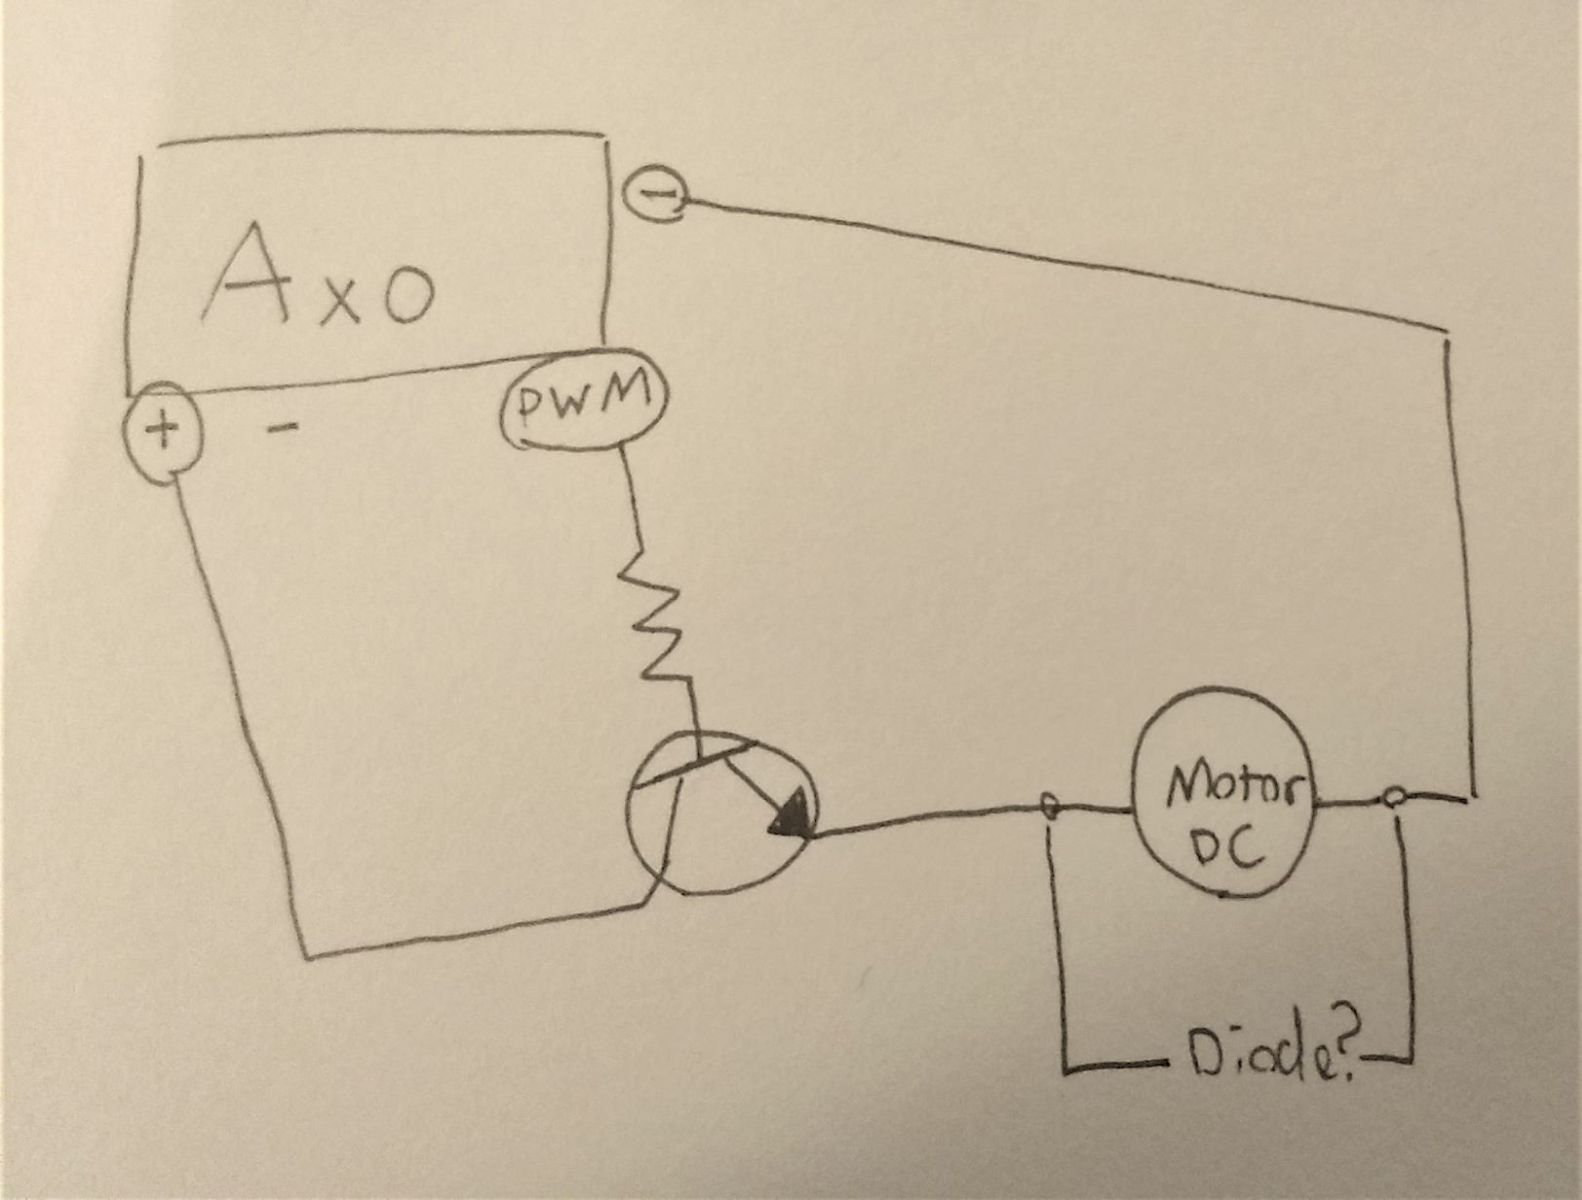 -
Axo
+ -
PWM
Motor
DC
Diode?